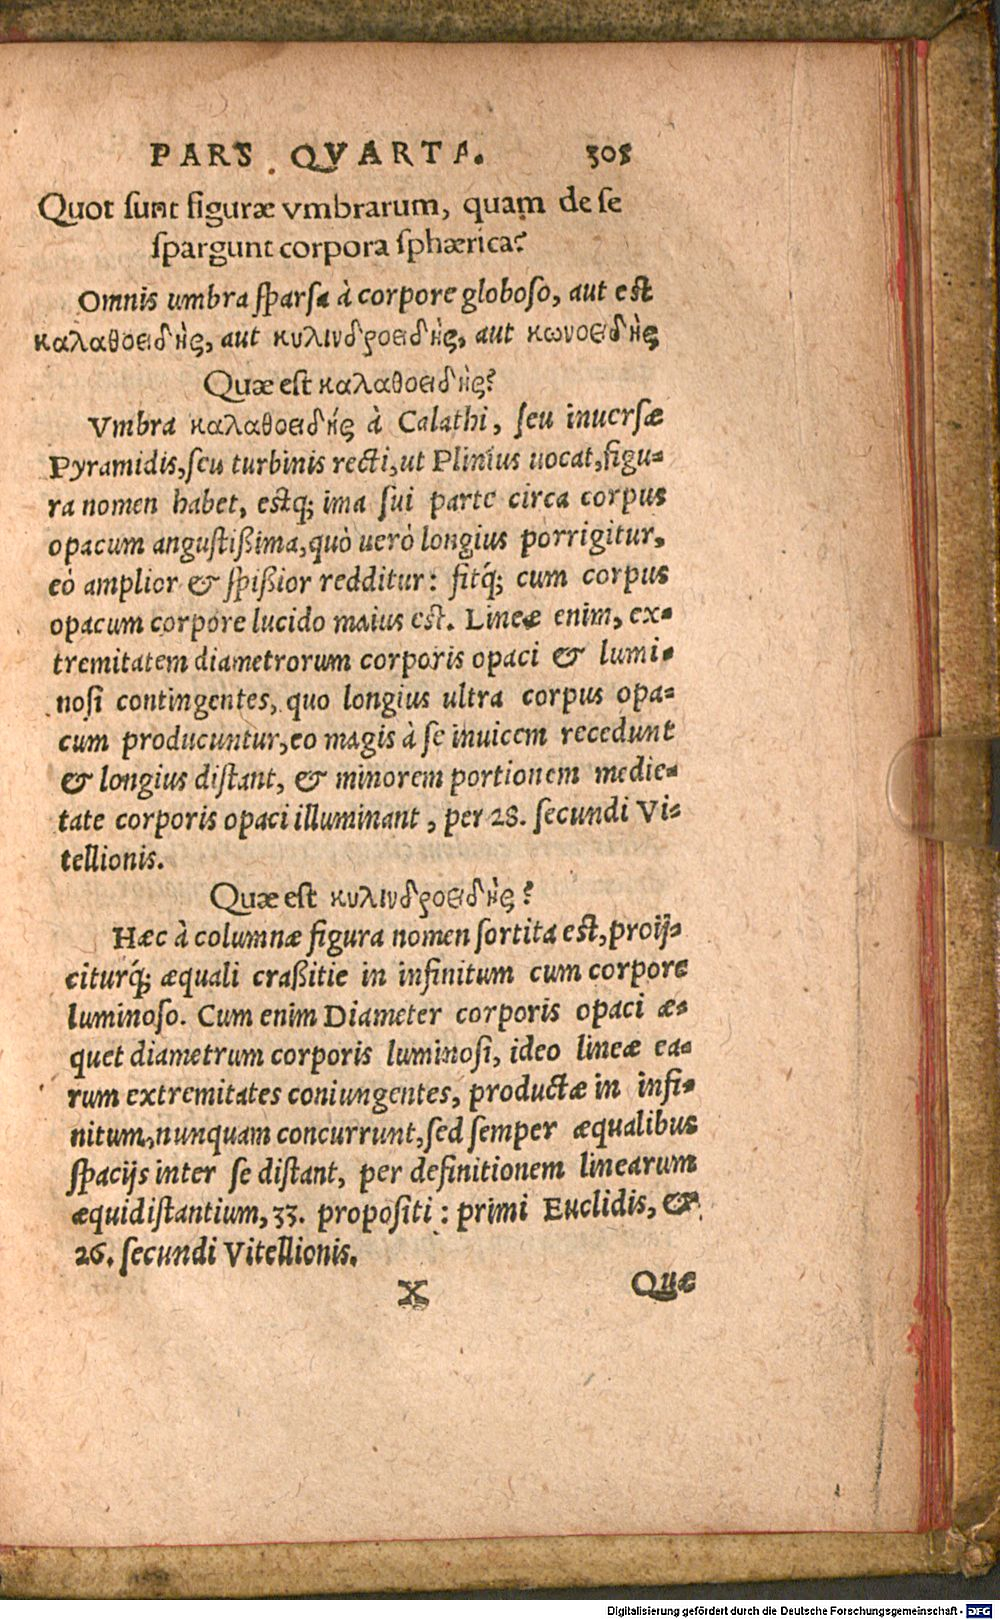 PARS QVARTA. 305
Quot sunt figuræ vmbrarum, quam de se
spargunt corpora sphærica?
Omnis umbra sparsa à corpore globoso, aut est
καλαθοειδὴς, aut κυλινδροειδὴς, aut κωνοειδὴς
Quæ est καλαθοειδὴς?
Vmbra καλαθοειδής à Calathi, seu inuersæ
Pyramidis, seu turbinis recti, ut Plinius uocat, figu-
ra nomen habet, estq; ima sui parte circa corpus
opacum angustißima, quò uerò longius porrigitur,
eò amplior & spißior redditur: fitq́; cum corpus
opacum corpore lucido maius est. Lineæ enim, ex-
tremitatem diametrorum corporis opaci & lumi-
nosi contingentes, quo longius ultra corpus opa-
cum producuntur, eo magis à se inuicem recedunt
& longius distant, & minorem portionem medie-
tate corporis opaci illuminant, per 28. secundi Vi-
tellionis.
Quæ est κυλινδροειδὴς?
Hæc à columnæ figura nomen sortita est, proij-
citurq́; æquali craßitie in infinitum cum corpore
luminoso. Cum enim Diameter corporis opaci æ-
quet diametrum corporis luminosi, ideo lineæ ea-
rum extremitates coniungentes, productæ in infi-
nitum, nunquam concurrunt, sed semper æqualibus
spacijs inter se distant, per definitionem linearum
æquidistantium, 33. propositi: primi Euclidis, &
26. secundi Vitellionis.
X Quæ
Digitalisierung gefördert durch die Deutsche Forschungsgemeinschaft - DFG